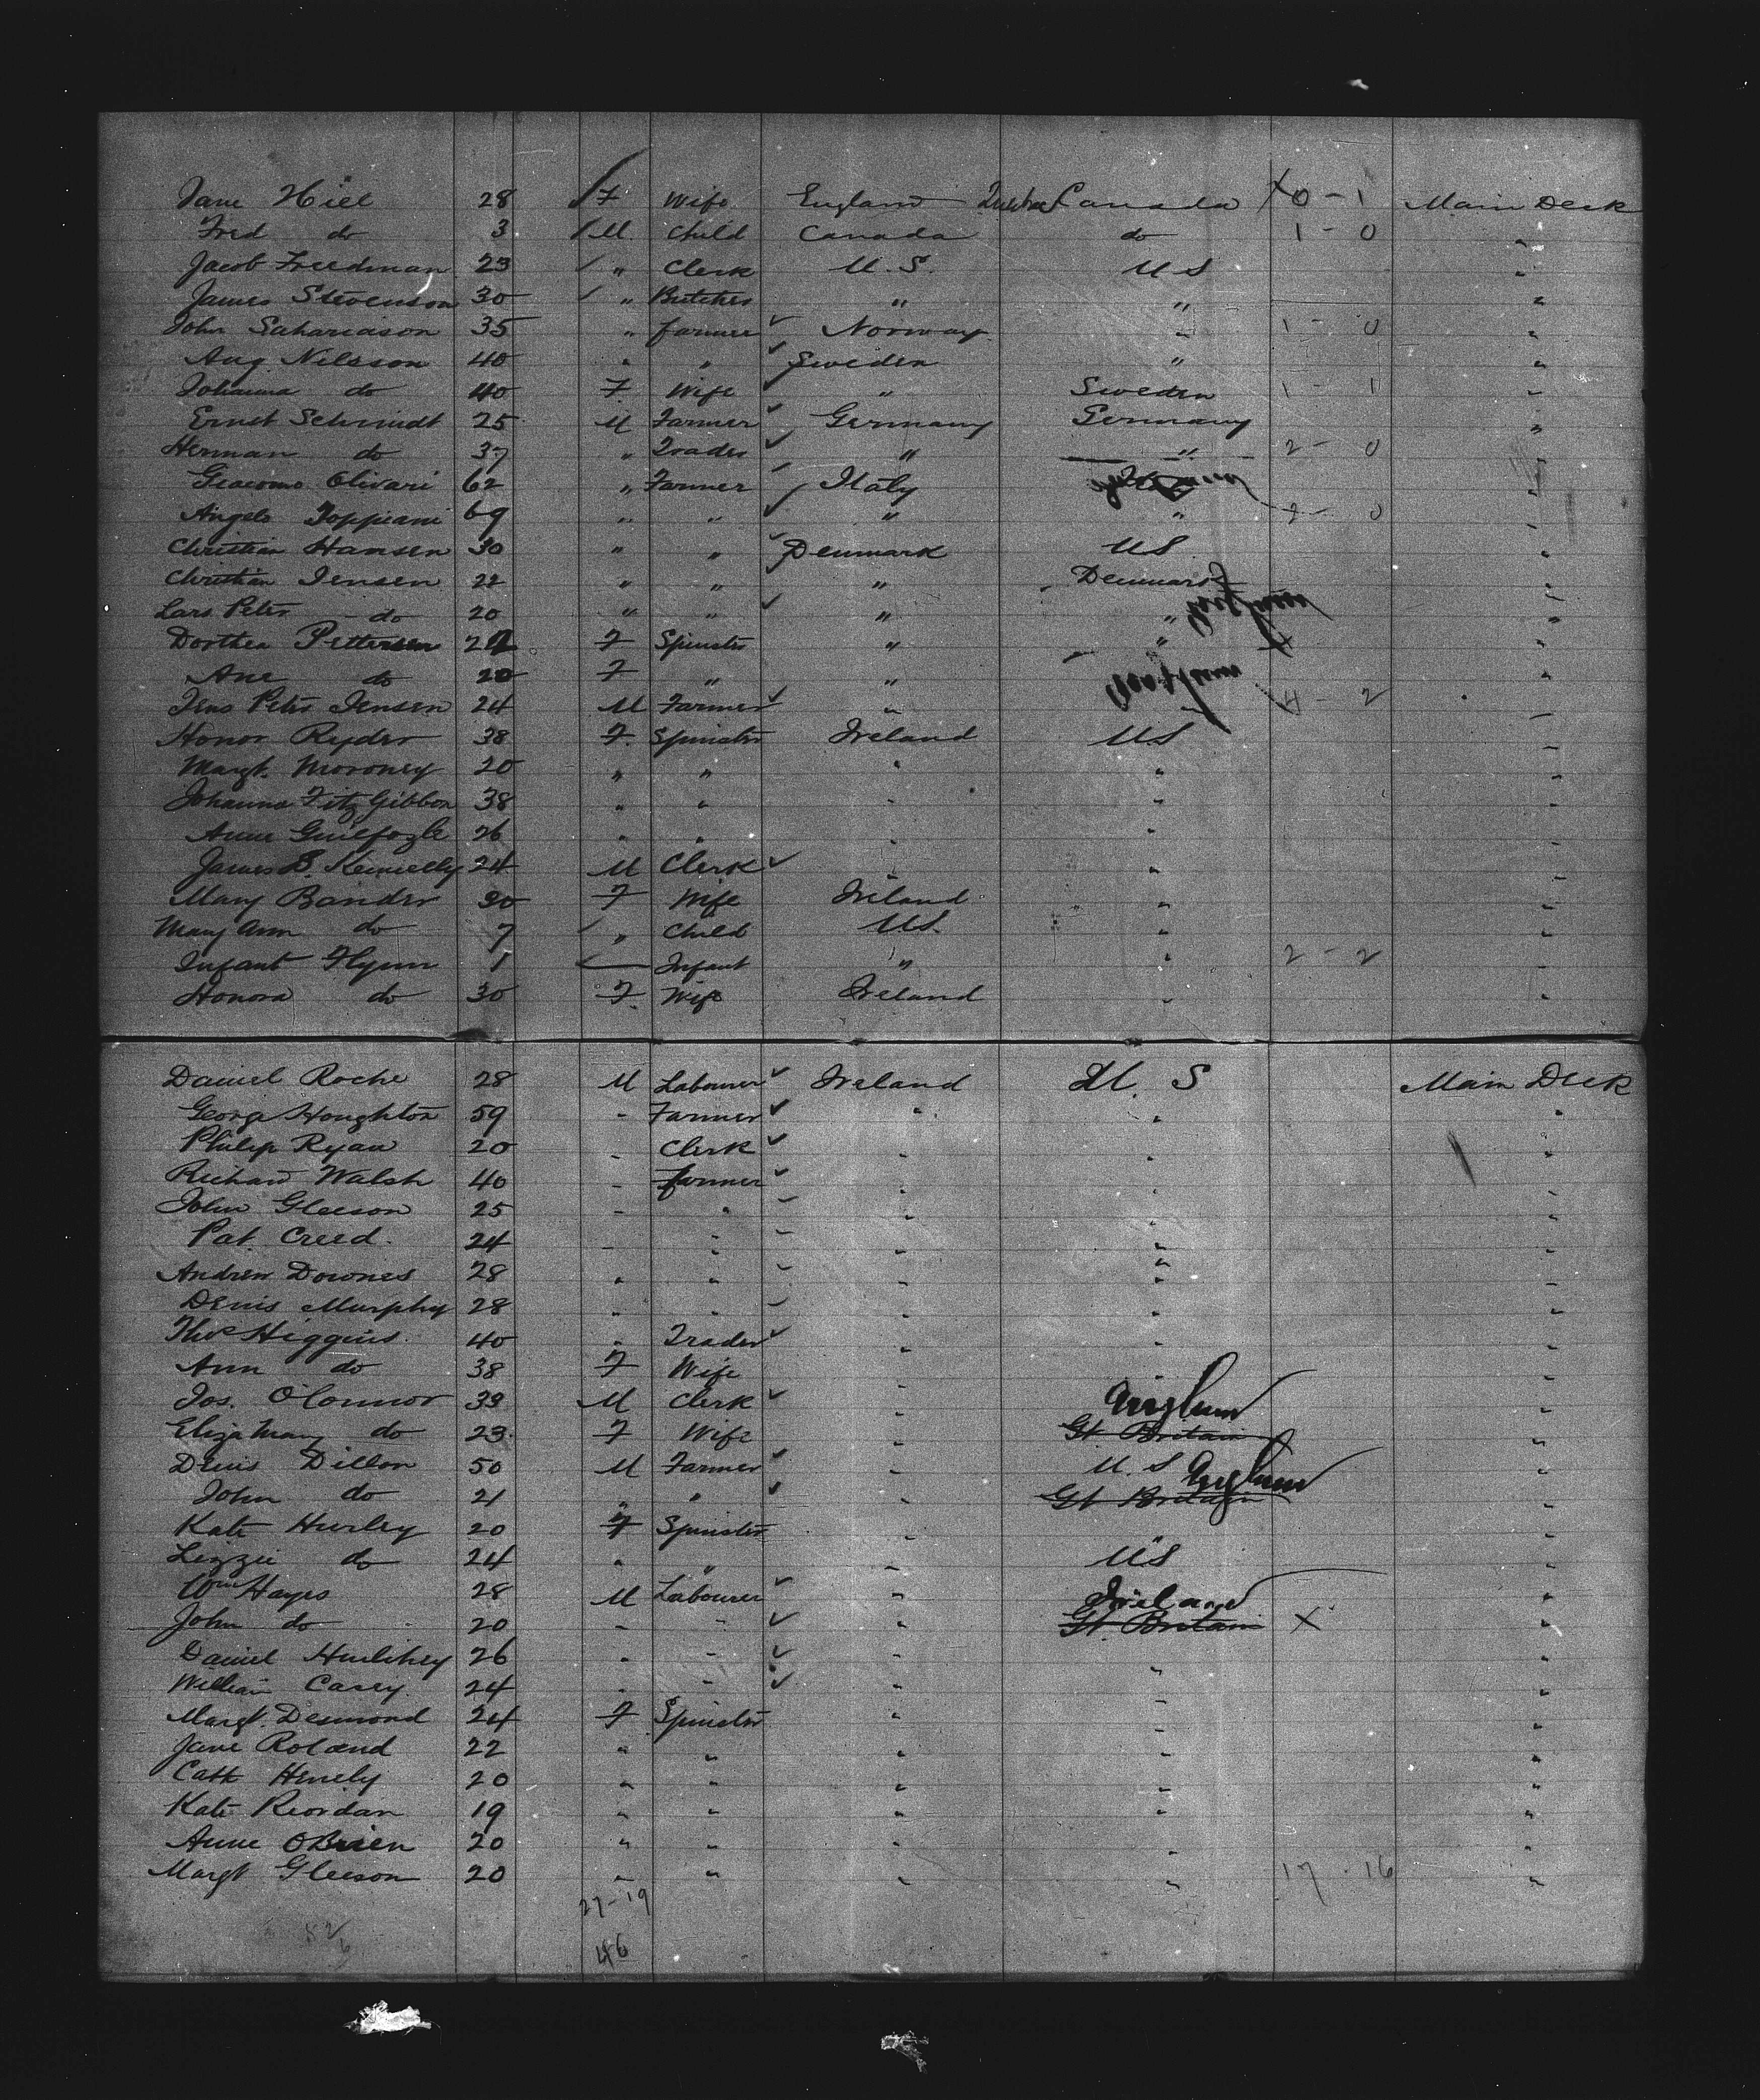 Jane Hill 28 F Wife England Quebec Canada X 0 - 1 Main Deck
Fred do 3 M. Child Canada do 1 - 0 "
Jacob Freedman 23 " Clerk U.S. U S "
James Stevenson 30 " Butcher " " "
John Sahariason 35 " farmer Norway " 1 - 0 "
Aug. Nilsson 40 " " Sweden " "
Johanna do 40 F Wife " Sweden 1 - 1 "
Ernst Schmidt 25 M Farmer Germany Germany "
Herman do 37 " Trader " " 2 - 0 "
Giacomo Olivari 62 " Farmer Italy "
Angelo 69 " " " " 2 - 0 "
Christian Hansen 30 " " Denmark US "
Christian Jensen 22 " " " Denmark "
Lars Peter do 20 " " " " "
Dorthea Pettersen 22 F Spinster " " X "
Ane do 20 F " " "
Jens Peter Jensen 24 M Farmer " 4 - 2 "
Honor Ryder 38 F. Spinster Ireland US "
Margt. Moroney 20 " " " " "
Johanna Fitz Gibbon 38 " " " " "
Anne Guilfoyle 26 " " " " "
James B. Kennelly 24 M Clerk " " "
Mary Bander 30 F Wife Ireland " "
Mary Ann do 7 " Child US. " "
Infant Flynn 1 Infant " " 2 - 2 "
Honora do 30 F Wife Ireland " "
Daniel Roche 28 M Labourer Ireland U. S Main Deck
George Houghton 59 " Farmer " " "
Philip Ryan 20 " Clerk " " "
Richard Walsh 40 " farmer " " "
John Gleeson 25 " " " " "
Pat. Creed. 24 " " " " "
Andrew Downes 28 " " " " "
Denis Murphy 28 " " " " "
Thos Higgins 40 " Trader " " "
Ann do 38 F Wife " "
Jos. O'Connor 39 M Clerk " "
Eliza Mary do 23 F Wife " Gt Britain "
Denis Dillon 50 M Farmer " U. S "
John do 21 " " " Gt Britain "
Kate Hurley 20 F Spinster " "
Lizzie do 24 " " " US "
Wm Hayes 28 M Labourer " Ireland "
John do 20 " " " Gt. Britain X "
Daniel Hurlihey 26 " " " " "
William Casey. 24 " " " " "
Margt. Desmond 24 F Spinster " " "
Jane Roland 22 " " " " "
Cath Henely 20 " " " " "
Kate Riordan 19 " " " " "
Anne OBrien 20 " " " " "
Margt Gleeson 20 " " " " 17 - 16 "
27 - 19
46